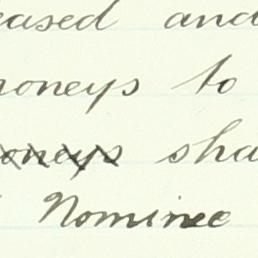 eased and
moneys to
oneys sha
Nominee